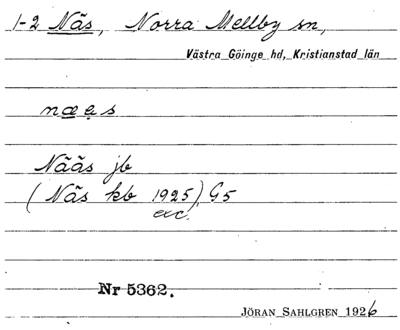 1-2 Näs, Norra Mellby sn,
Västra Göinge hd, Kristianstad län
næ̱ę s
Nääs jb
(Näs kb 1925), G5
exc.
Nr 5362.
JÖRAN SAHLGREN 1926